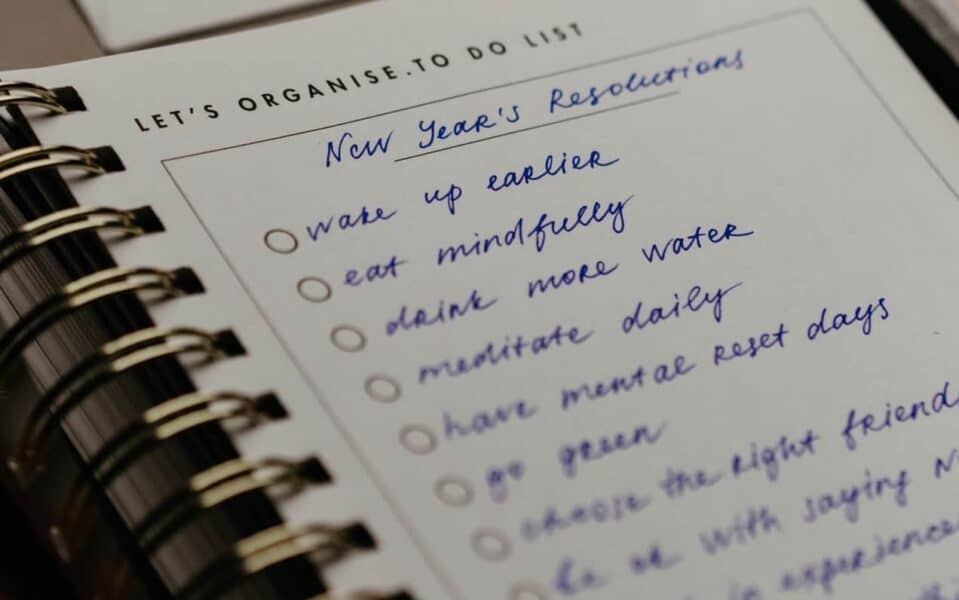 LET'S ORGANISE.TO DO LIST
New Year's Resolutions
wake up earlier
eat mindfully
drink more water
meditate daily
have mental reset days
go green
choose the right friend
be ok with saying N
in experience